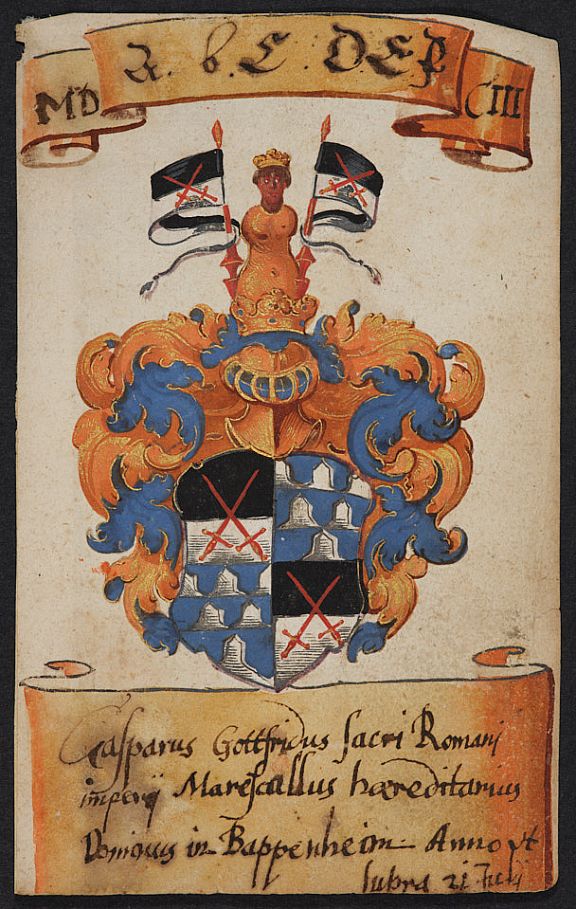 A. b. C. D. E F
MD CIII
Casparus Gottfridus sacri Romani
imperij Marescallus hæreditarius
Dominus in Bappenheim Anno vt
supra 21 Julij